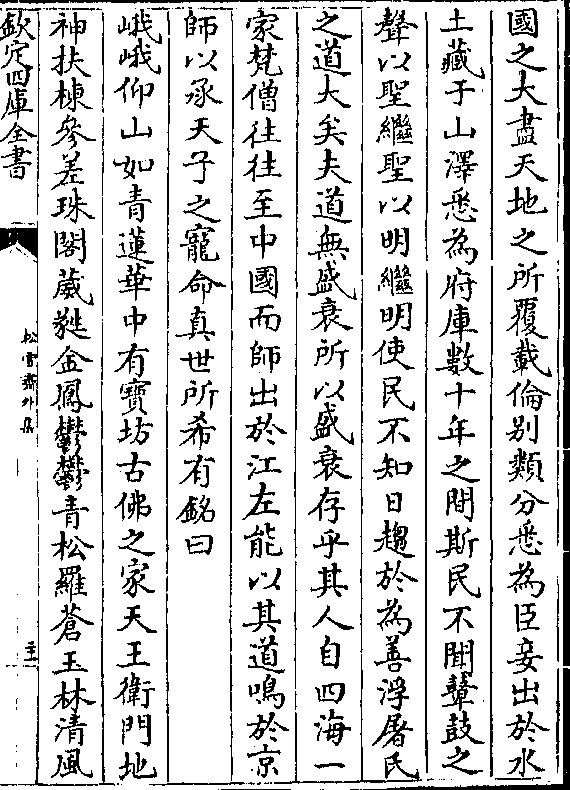 國之大盡天地之所覆載倫别類分悉為臣妾出於水
土藏于山澤悉為府庫數十年之間斯民不聞鼙鼓之
聲以聖繼聖以明繼明使民不知日趨於為善浮屠氏
之道大矣夫道無盛衰所以盛衰存乎其人自四海一
家梵僧往往至中國而師出於江左能以其道鳴於京
師以承天子之寵命真世所希有銘曰
峨峨仰山如青蓮華中有寶坊古佛之家天王衛門地
神扶棟參差珠閣葳甤金鳳鬱鬱青松羅蒼玉林清風
欽定四庫全書
松雪齋外集
二十一